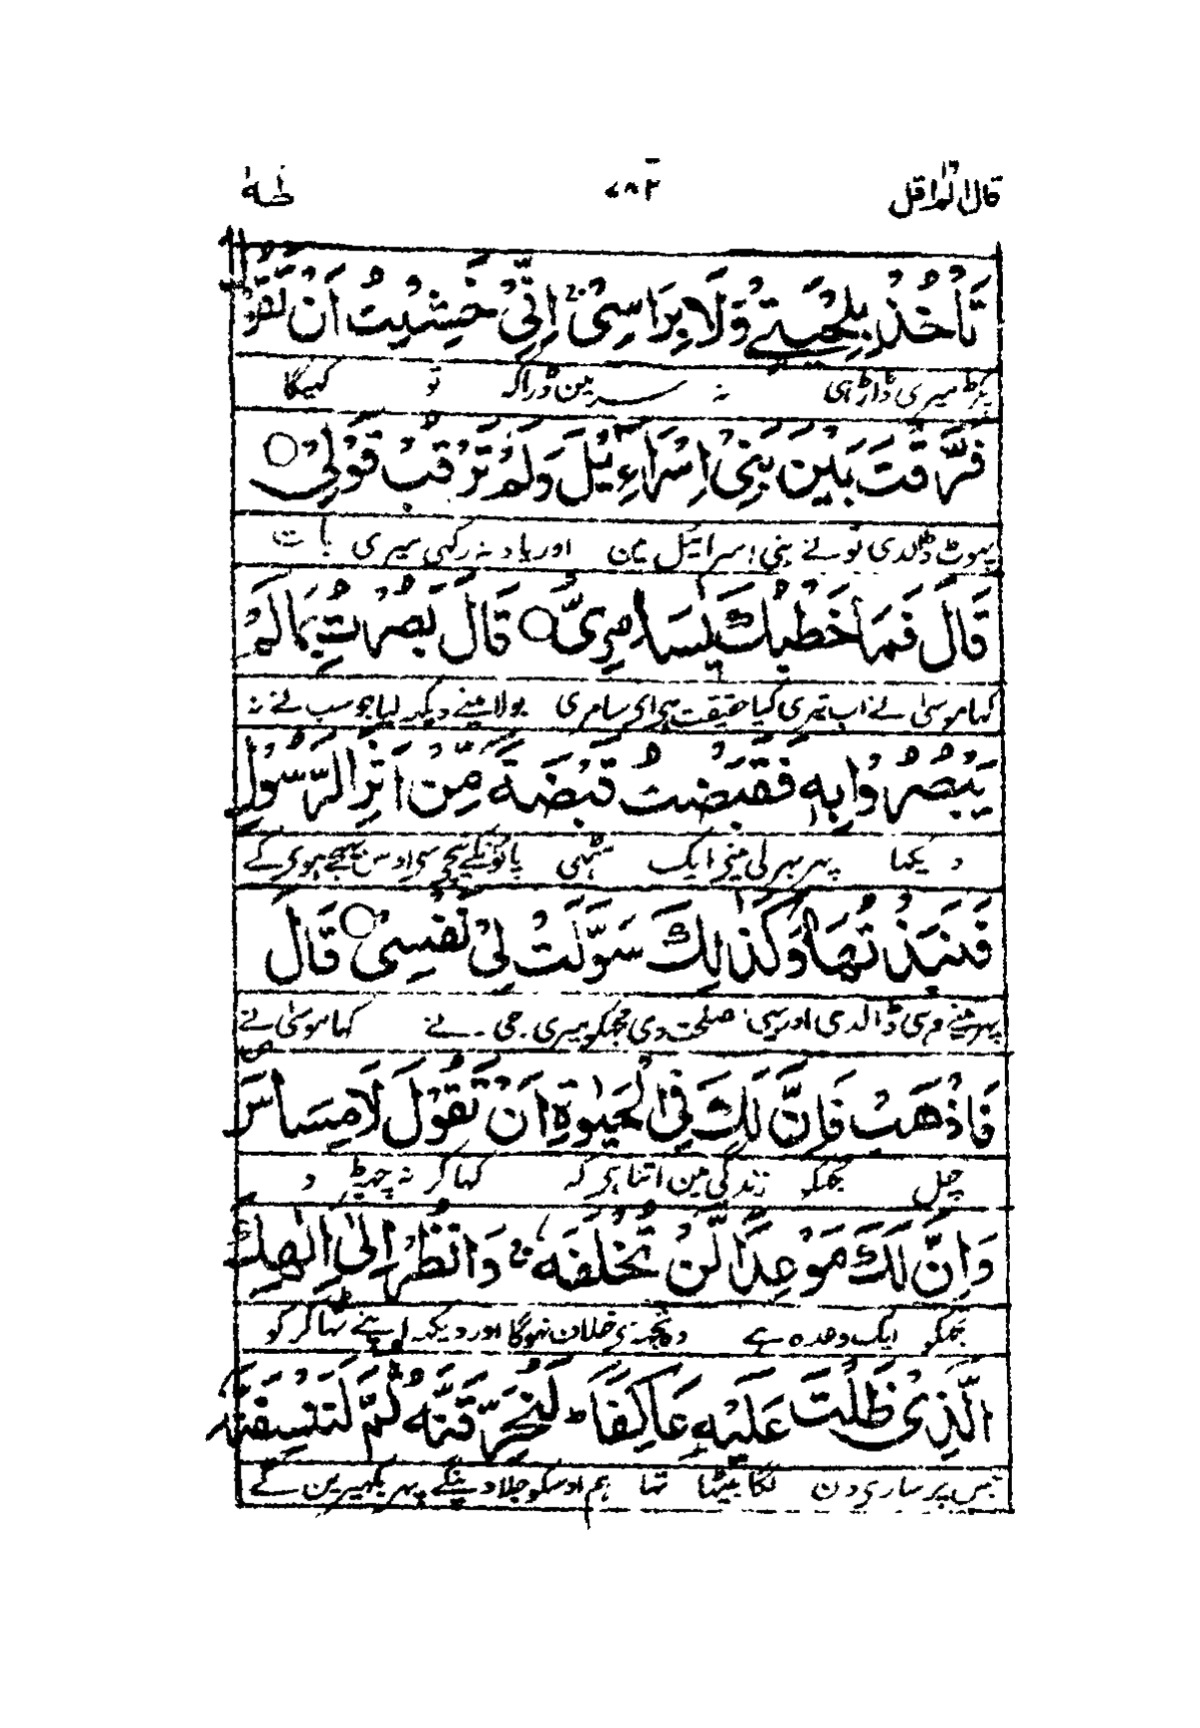 قال الم ١٦ ٤٨٢ طٰهٰ
تَاْخُذْ بِلِحْيَتِيْ وَلَا بِرَاْسِيْ ۚ اِنِّيْ خَشِيْتُ اَنْ تَقُوْلَ
پکڑ میری ڈاڑہی نہ سر مین ڈرا کہ تو کہیگا
فَرَّقْتَ بَيْنَ بَنِيْٓ اِسْرَآءِيْلَ وَلَمْ تَرْقُبْ قَوْلِيْ ○
پہوٹ ڈالدی تو نے بنی اسرائیل مین اور یاد نہ رکہی میری بات
قَالَ فَمَا خَطْبُكَ يٰسَامِرِيُّ ○ قَالَ بَصُرْتُ بِمَا لَمْ
کہا موسیٰ نے اب تیری کیا حقیقت ہی ای سامری بولا مینے دیکہہ لیا جو سب نے نہ
يَبْصُرُوْا بِهٖ فَقَبَضْتُ قَبْضَةً مِّنْ اَثَرِ الرَّسُوْلِ
دیکہا پہر بہر لی مینے ایک مٹہی پانو کے نیچے سی اوس بہیجے ہوی کے
فَنَبَذْتُهَا وَكَذٰلِكَ سَوَّلَتْ لِيْ نَفْسِيْ ○ قَالَ
پہر مینے وہی ڈالدی اور یہی صلحت دی مجہکو میری جی نے کہا موسیٰ نے
فَاذْهَبْ فَاِنَّ لَكَ فِي الْحَيٰوةِ اَنْ تَقُوْلَ لَا مِسَاسَ
چل تجہکو زندگی مین اتنا ہی کہ کہا کر نہ چہیڑو
وَاِنَّ لَكَ مَوْعِدًا لَّنْ تُخْلَفَهٗ ۚ وَانْظُرْ اِلٰٓى اِلٰهِكَ
تجہکو ایک وعدہ ہے وہ تجہسی خلاف نہوگا اور دیکہہ اپنے ٹہاکر کو
الَّذِيْ ظَلْتَ عَلَيْهِ عَاكِفًا ؕ لَنُحَرِّقَنَّهٗ ثُمَّ لَنَنْسِفَنَّهٗ
جس پر ساری دن لگا بیٹہا تہا ہم اوسکو جلا دینگے پہر بکہیرین گے